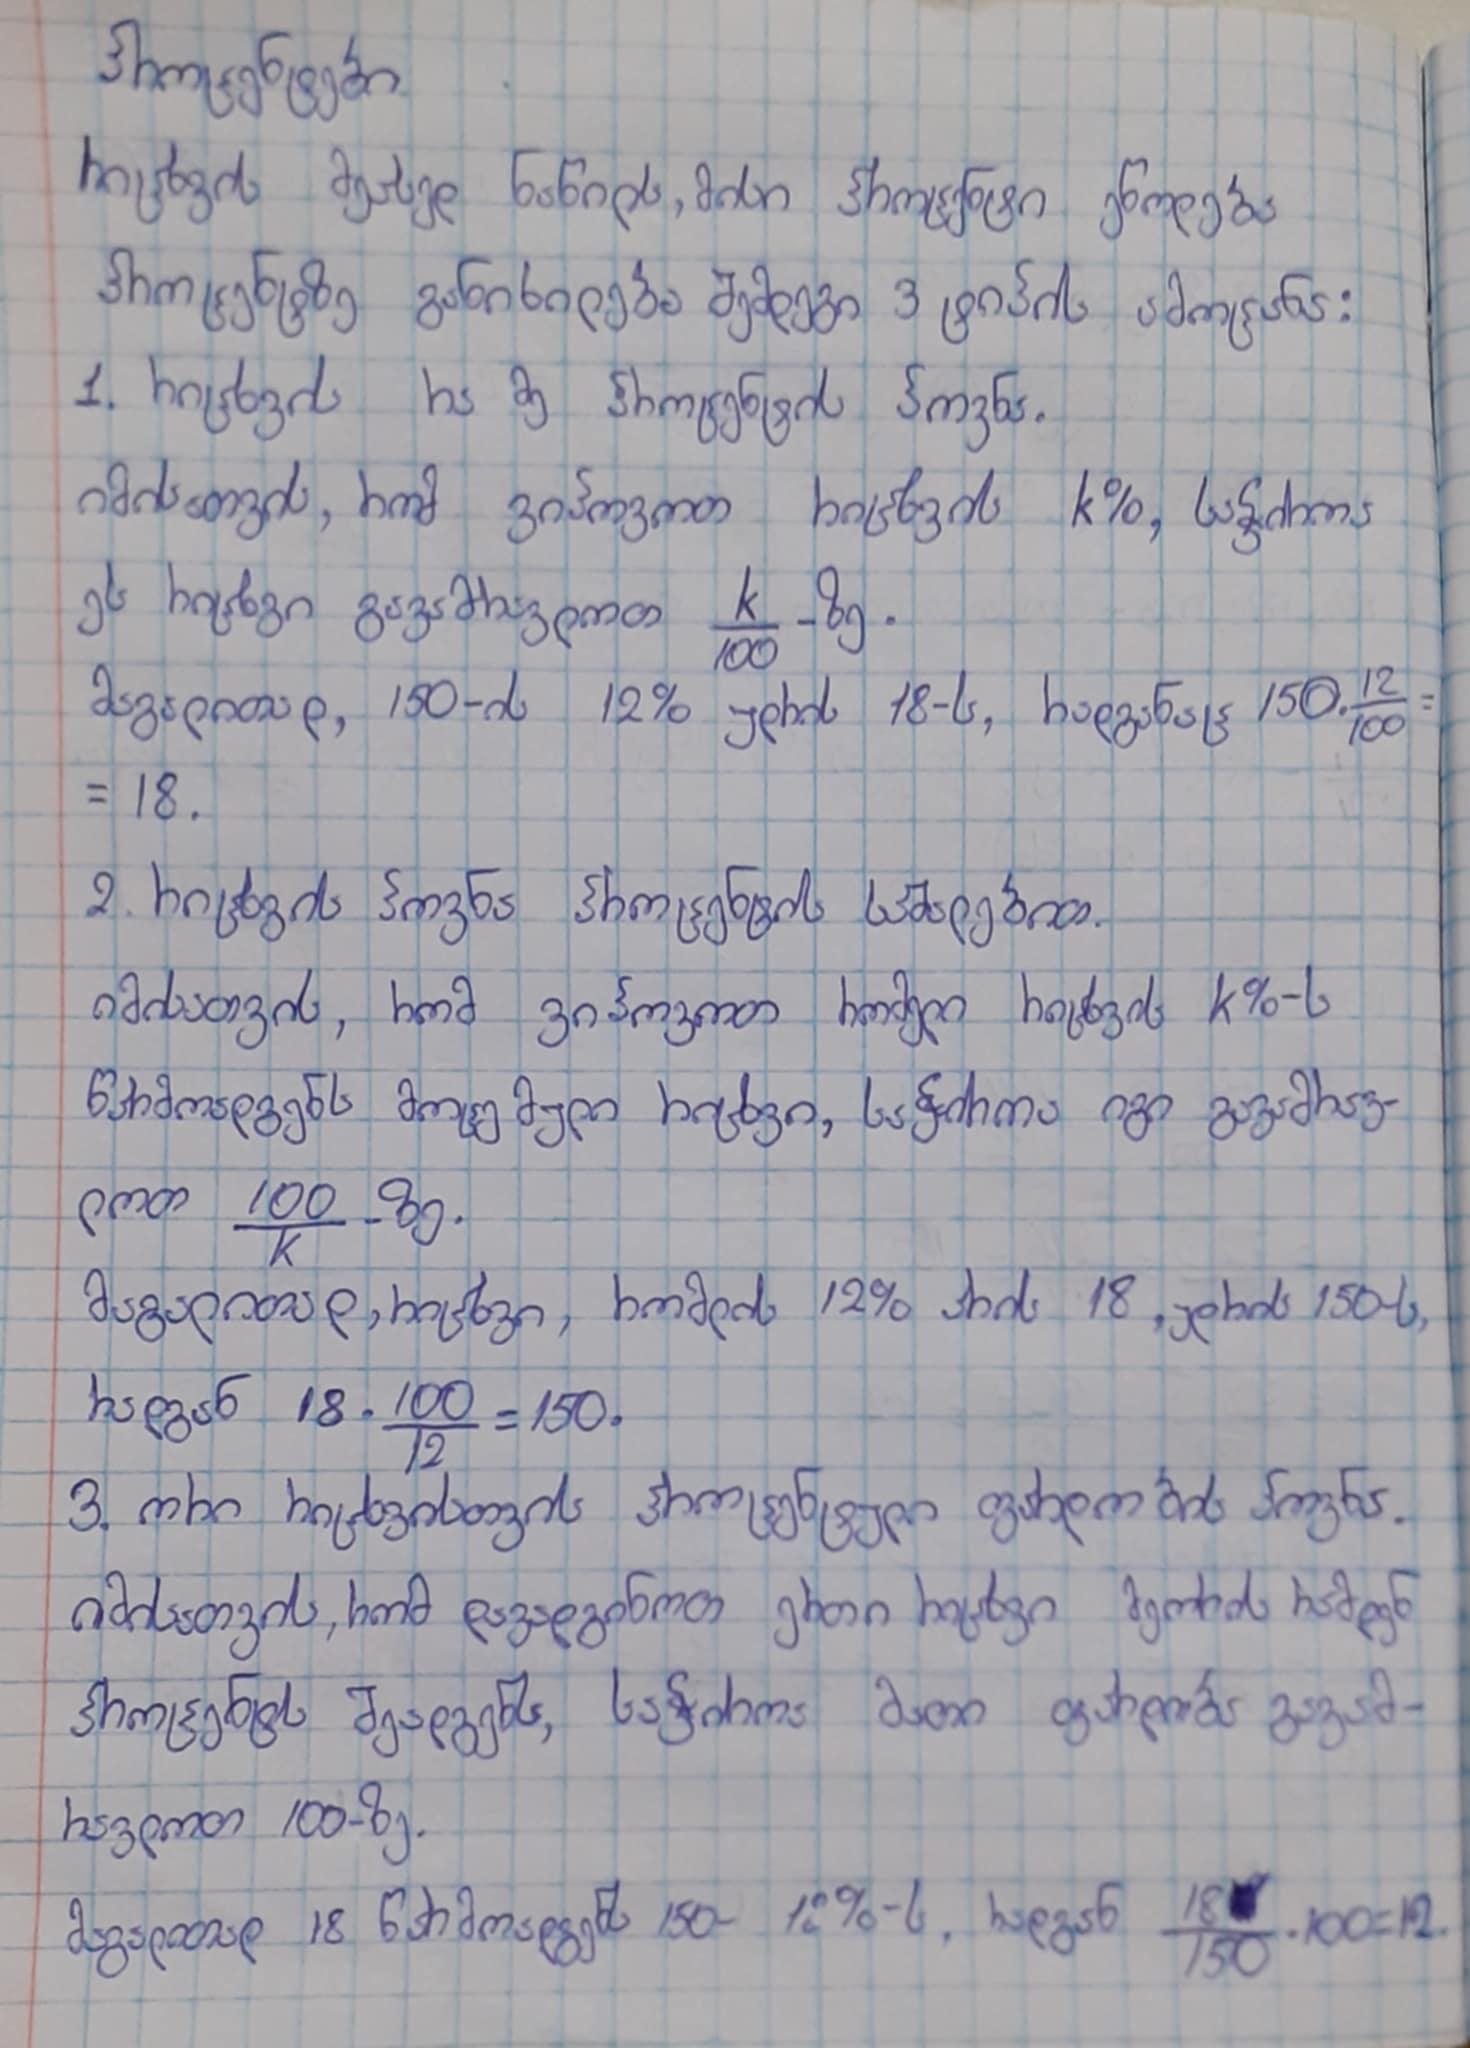 პროცენტები
რიცხვის მეასედ ნაწილს, მისი პროცენტი ეწოდება
პროცენტზე განიხილება შემდეგი 3 ტიპის ამოცანა:
1. რიცხვის რა მე პროცენტის პოვნა.
იმისათვის, რომ ვიპოვოთ რიცხვის k%, საჭიროა
ეს რიცხვი გავამრავლოთ k/100 -ზე.
მაგალითად, 150-ის 12% უდრის 18-ს, რადგანაც 150·12/100 =
= 18.
2. რიცხვის პოვნა პროცენტის საშალებით.
იმისათვის, რომ ვიპოვოთ რომელი რიცხვის k%-ს
წარმოადგენს მოცემული რიცხვი, საჭიროა იგი გავამრავ-
ლოთ 100/k -ზე.
მაგალითად, რიცხვი, რომლის 12% არის 18, უდრის 150-ს,
რადგან 18 · 100/12 = 150.
3. ორი რიცხვისთვის პროცენტული ფარდობის პოვნა.
იმისათვის, რომ დავადგინოთ ერთი რიცხვი მეორის რამდენ
პროცენტს შეადგენს, საჭიროა მათი ფარდობა გავამ-
რავლოთ 100-ზე.
მაგალითად 18 წარმოადგენს 150- 12%-ს, რადგან 18/150 · 100 = 12.